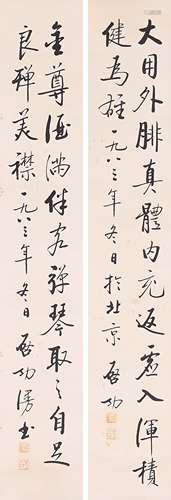 大用外腓真體內充返虛入渾積
健為雄一九八三年冬日於北京啟功
金尊酒滿伴客彈琴取之自足
良殫美襟一九八三年冬日啟功漫書